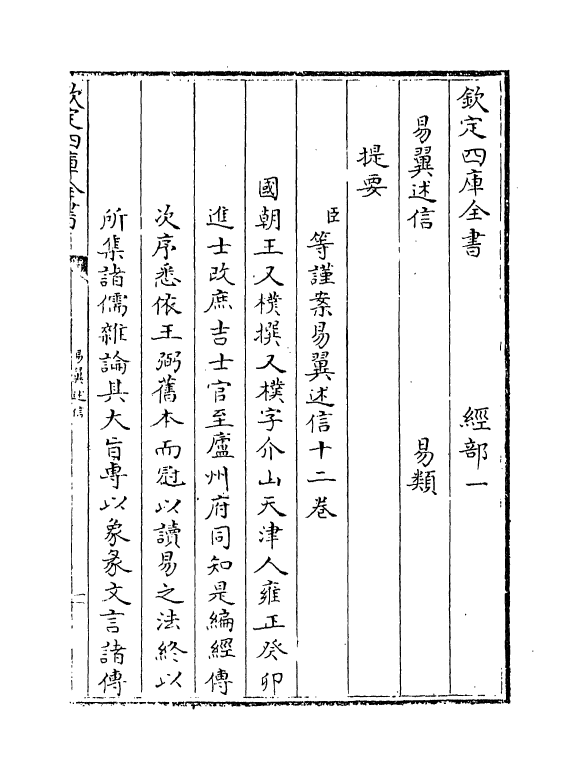 欽定四庫全書　經部一
易翼述信　易類
提要
臣等謹案易翼述信十二卷
國朝王又樸撰又樸字介山天津人雍正癸卯
進士改庶吉士官至廬州府同知是編經傳
次序悉依王弼舊本而冠以讀易之法終以
所集諸儒雜論其大旨専以彖象文言諸傳
欽定四庫全書
易翼述信
一